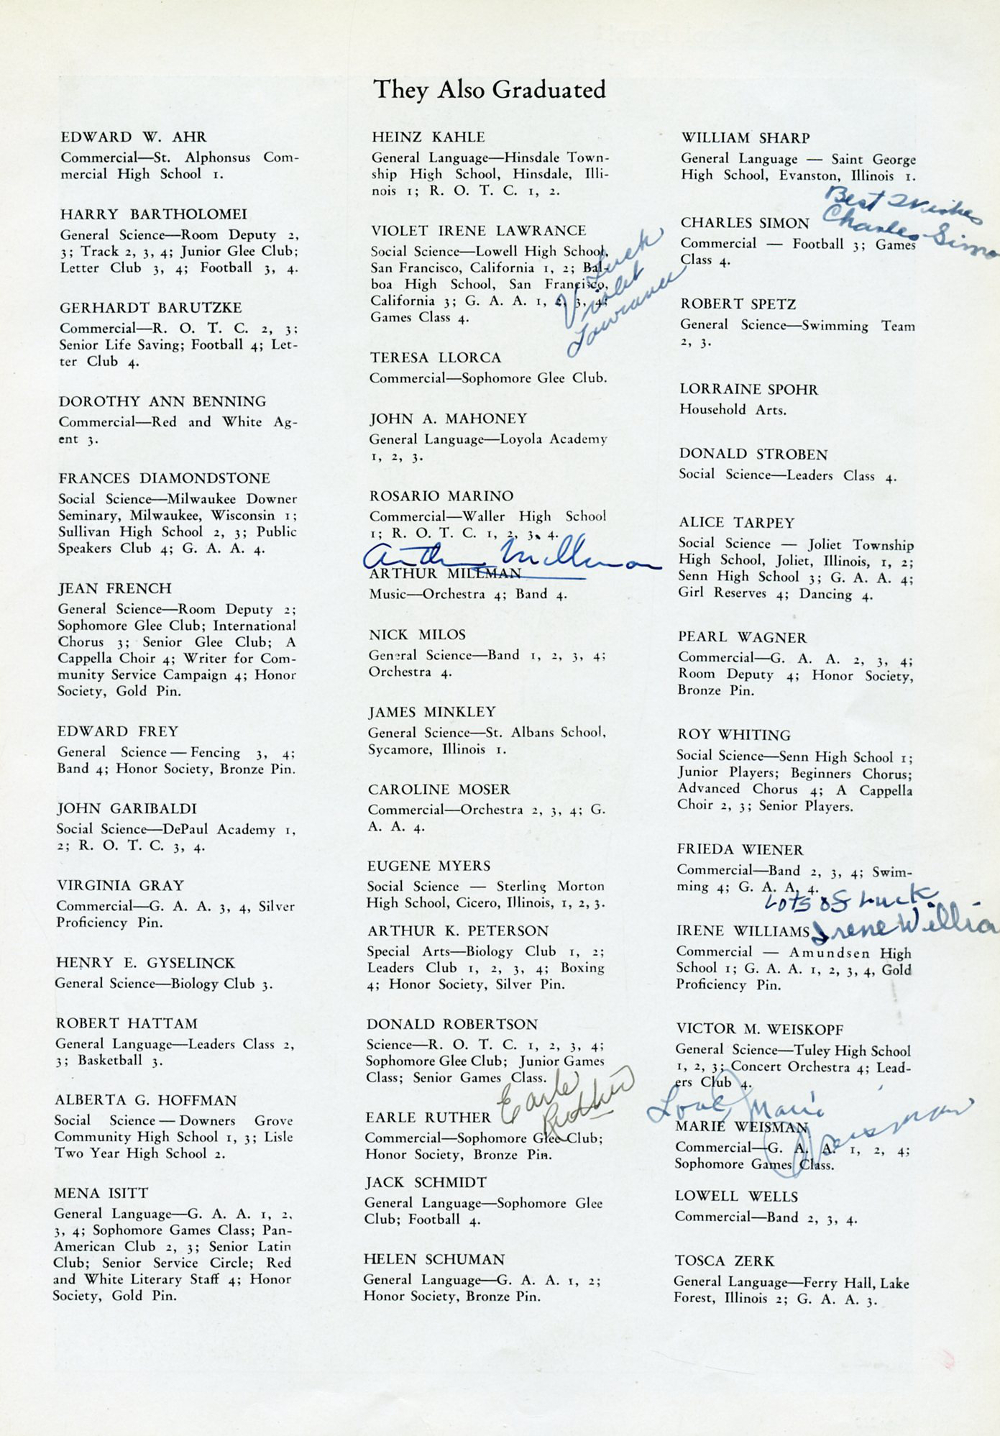 They Also Graduated
EDWARD W. AHR
Commercial—St. Alphonsus Com-
mercial High School 1.
HARRY BARTHOLOMEI
General Science—Room Deputy 2,
3; Track 2, 3, 4; Junior Glee Club;
Letter Club 3, 4; Football 3, 4.
GERHARDT BARUTZKE
Commercial—R. O. T. C. 2, 3;
Senior Life Saving; Football 4; Let-
ter Club 4.
DOROTHY ANN BENNING
Commercial—Red and White Ag-
ent 3.
FRANCES DIAMONDSTONE
Social Science—Milwaukee Downer
Seminary, Milwaukee, Wisconsin 1;
Sullivan High School 2, 3; Public
Speakers Club 4; G. A. A. 4.
JEAN FRENCH
General Science—Room Deputy 2;
Sophomore Glee Club; International
Chorus 3; Senior Glee Club; A
Cappella Choir 4; Writer for Com-
munity Service Campaign 4; Honor
Society, Gold Pin.
EDWARD FREY
General Science—Fencing 3, 4;
Band 4; Honor Society, Bronze Pin.
JOHN GARIBALDI
Social Science—DePaul Academy 1,
2; R. O. T. C. 3, 4.
VIRGINIA GRAY
Commercial—G. A. A. 3, 4, Silver
Proficiency Pin.
HENRY E. GYSELINCK
General Science—Biology Club 3.
ROBERT HATTAM
General Language—Leaders Class 2,
3; Basketball 3.
ALBERTA G. HOFFMAN
Social Science—Downers Grove
Community High School 1, 3; Lisle
Two Year High School 2.
MENA ISITT
General Language—G. A. A. 1, 2,
3, 4; Sophomore Games Class; Pan-
American Club 2, 3; Senior Latin
Club; Senior Service Circle; Red
and White Literary Staff 4; Honor
Society, Gold Pin.
HEINZ KAHLE
General Language—Hinsdale Town-
ship High School, Hinsdale, Illi-
nois 1; R. O. T. C. 1, 2.
VIOLET IRENE LAWRANCE
Social Science—Lowell High School,
San Francisco, California 1, 2; Bal-
boa High School, San Francisco,
California 3; G. A. A. 1, 2, 3, 4;
Games Class 4.
Luck
Violet
Lawrance
TERESA LLORCA
Commercial—Sophomore Glee Club.
JOHN A. MAHONEY
General Language—Loyola Academy
1, 2, 3.
ROSARIO MARINO
Commercial—Waller High School
1; R. O. T. C. 1, 2, 3, 4.
Arthur Millman
ARTHUR MILLMAN
Music—Orchestra 4; Band 4.
NICK MILOS
General Science—Band 1, 2, 3, 4;
Orchestra 4.
JAMES MINKLEY
General Science—St. Albans School,
Sycamore, Illinois 1.
CAROLINE MOSER
Commercial—Orchestra 2, 3, 4; G.
A. A. 4.
EUGENE MYERS
Social Science — Sterling Morton
High School, Cicero, Illinois, 1, 2, 3.
ARTHUR K. PETERSON
Special Arts—Biology Club 1, 2;
Leaders Club 1, 2, 3, 4; Boxing
4; Honor Society, Silver Pin.
DONALD ROBERTSON
Science—R. O. T. C. 1, 2, 3, 4;
Sophomore Glee Club; Junior Games
Class; Senior Games Class.
Earle
Ruther
EARLE RUTHER
Commercial—Sophomore Glee Club;
Honor Society, Bronze Pin.
JACK SCHMIDT
General Language—Sophomore Glee
Club; Football 4.
HELEN SCHUMAN
General Language—G. A. A. 1, 2;
Honor Society, Bronze Pin.
WILLIAM SHARP
General Language — Saint George
High School, Evanston, Illinois 1.
Best Wishes
Charles Simo
CHARLES SIMON
Commercial — Football 3; Games
Class 4.
ROBERT SPETZ
General Science—Swimming Team
2, 3.
LORRAINE SPOHR
Household Arts.
DONALD STROBEN
Social Science—Leaders Class 4.
ALICE TARPEY
Social Science — Joliet Township
High School, Joliet, Illinois, 1, 2;
Senn High School 3; G. A. A. 4;
Girl Reserves 4; Dancing 4.
PEARL WAGNER
Commercial—G. A. A. 2, 3, 4;
Room Deputy 4; Honor Society,
Bronze Pin.
ROY WHITING
Social Science—Senn High School 1;
Junior Players; Beginners Chorus;
Advanced Chorus 4; A Cappella
Choir 2, 3; Senior Players.
FRIEDA WIENER
Commercial—Band 2, 3, 4; Swim-
ming 4; G. A. A. 4.
Lots of Luck
Irene Willia
IRENE WILLIAMS
Commercial — Amundsen High
School 1; G. A. A. 1, 2, 3, 4, Gold
Proficiency Pin.
VICTOR M. WEISKOPF
General Science—Tuley High School
1, 2, 3; Concert Orchestra 4; Lead-
ers Club 4.
Love, Marie
Weisman
MARIE WEISMAN
Commercial—G. A. A. 1, 2, 4;
Sophomore Games Class.
LOWELL WELLS
Commercial—Band 2, 3, 4.
TOSCA ZERK
General Language—Ferry Hall, Lake
Forest, Illinois 2; G. A. A. 3.